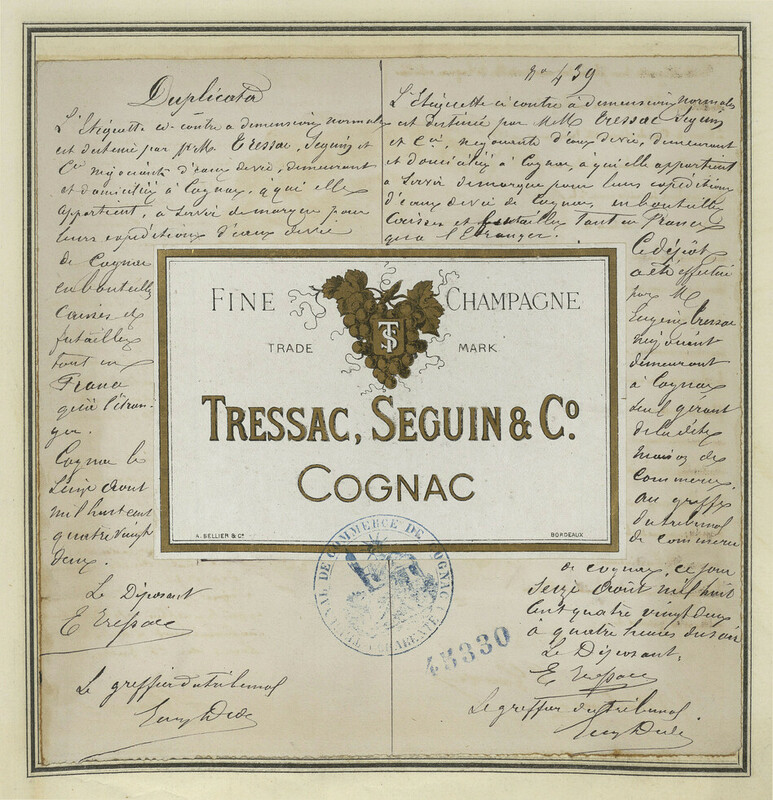 Duplicata
L'Etiquette ci-contre à dimensions normales
est destinée par MM. Tressac, Seguin et
Cie négociants d'eaux de vie, demeurant
et domiciliés à Cognac, à qui elle
appartient, à servir de marque pour
leurs expéditions d'eaux de vie
de Cognac
en bouteilles
caisses et
futailles
tant en
France
qu'à l'étran-
ger.
Cognac le
seize août
mil huit cent
quatre vingt
deux.
Le Déposant
E Tressac
Le greffier du tribunal
No 439
L'Etiquette ci contre à dimensions normales
est destinée par MM Tressac Seguin
et Cie, négociants d'eaux de vie, demeurant
et domiciliés à Cognac, à qui elle appartient
à servir de marque pour leurs expéditions
d'eaux de vie de Cognac, en bouteilles
caisses et futailles tant en France
qu'à l'Etranger.
Ce dépôt
a été effectué
par M
Eugène Tressac
négociant
demeurant
à Cognac
seul gérant
de la dite
maison de
commerce.
au greffe
du tribunal
de commerce
de cognac, ce jour
seize août mil huit
cent quatre vingt deux
à quatre heures du soir
Le Déposant:
E Tressac
Le greffier du tribunal
FINE CHAMPAGNE
TS
TRADE MARK
TRESSAC, SEGUIN & Co.
COGNAC
A. SELLIER & Co.
BORDEAUX
DE COMMERCE DE COGNAC
CHARENTE
45330